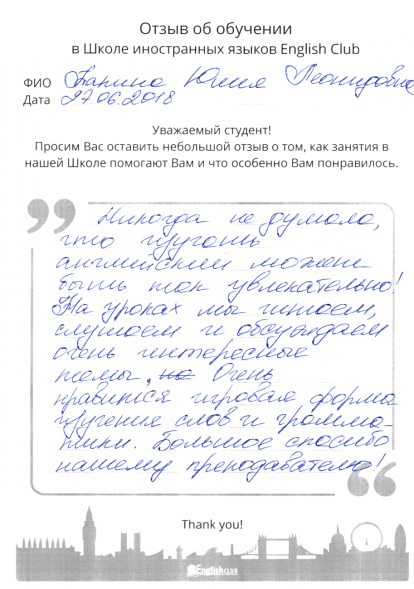 Отзыв об обучении
в Школе иностранных языков English Club
ФИО Панина Юлия Леонидовна
Дата 27.06.2018
Уважаемый студент!
Просим Вас оставить небольшой отзыв о том, как занятия в
нашей Школе помогают Вам и что особенно Вам понравилось.
Никогда не думала,
что изучать
английский может
быть так увлекательно!
На уроках мы читаем,
слушаем и обсуждаем
очень интересные
темы, но Очень
нравится игровая форма
изучения слов и грамма-
тики. Большое спасибо
нашему преподавателю!
Thank you!
English CLUB